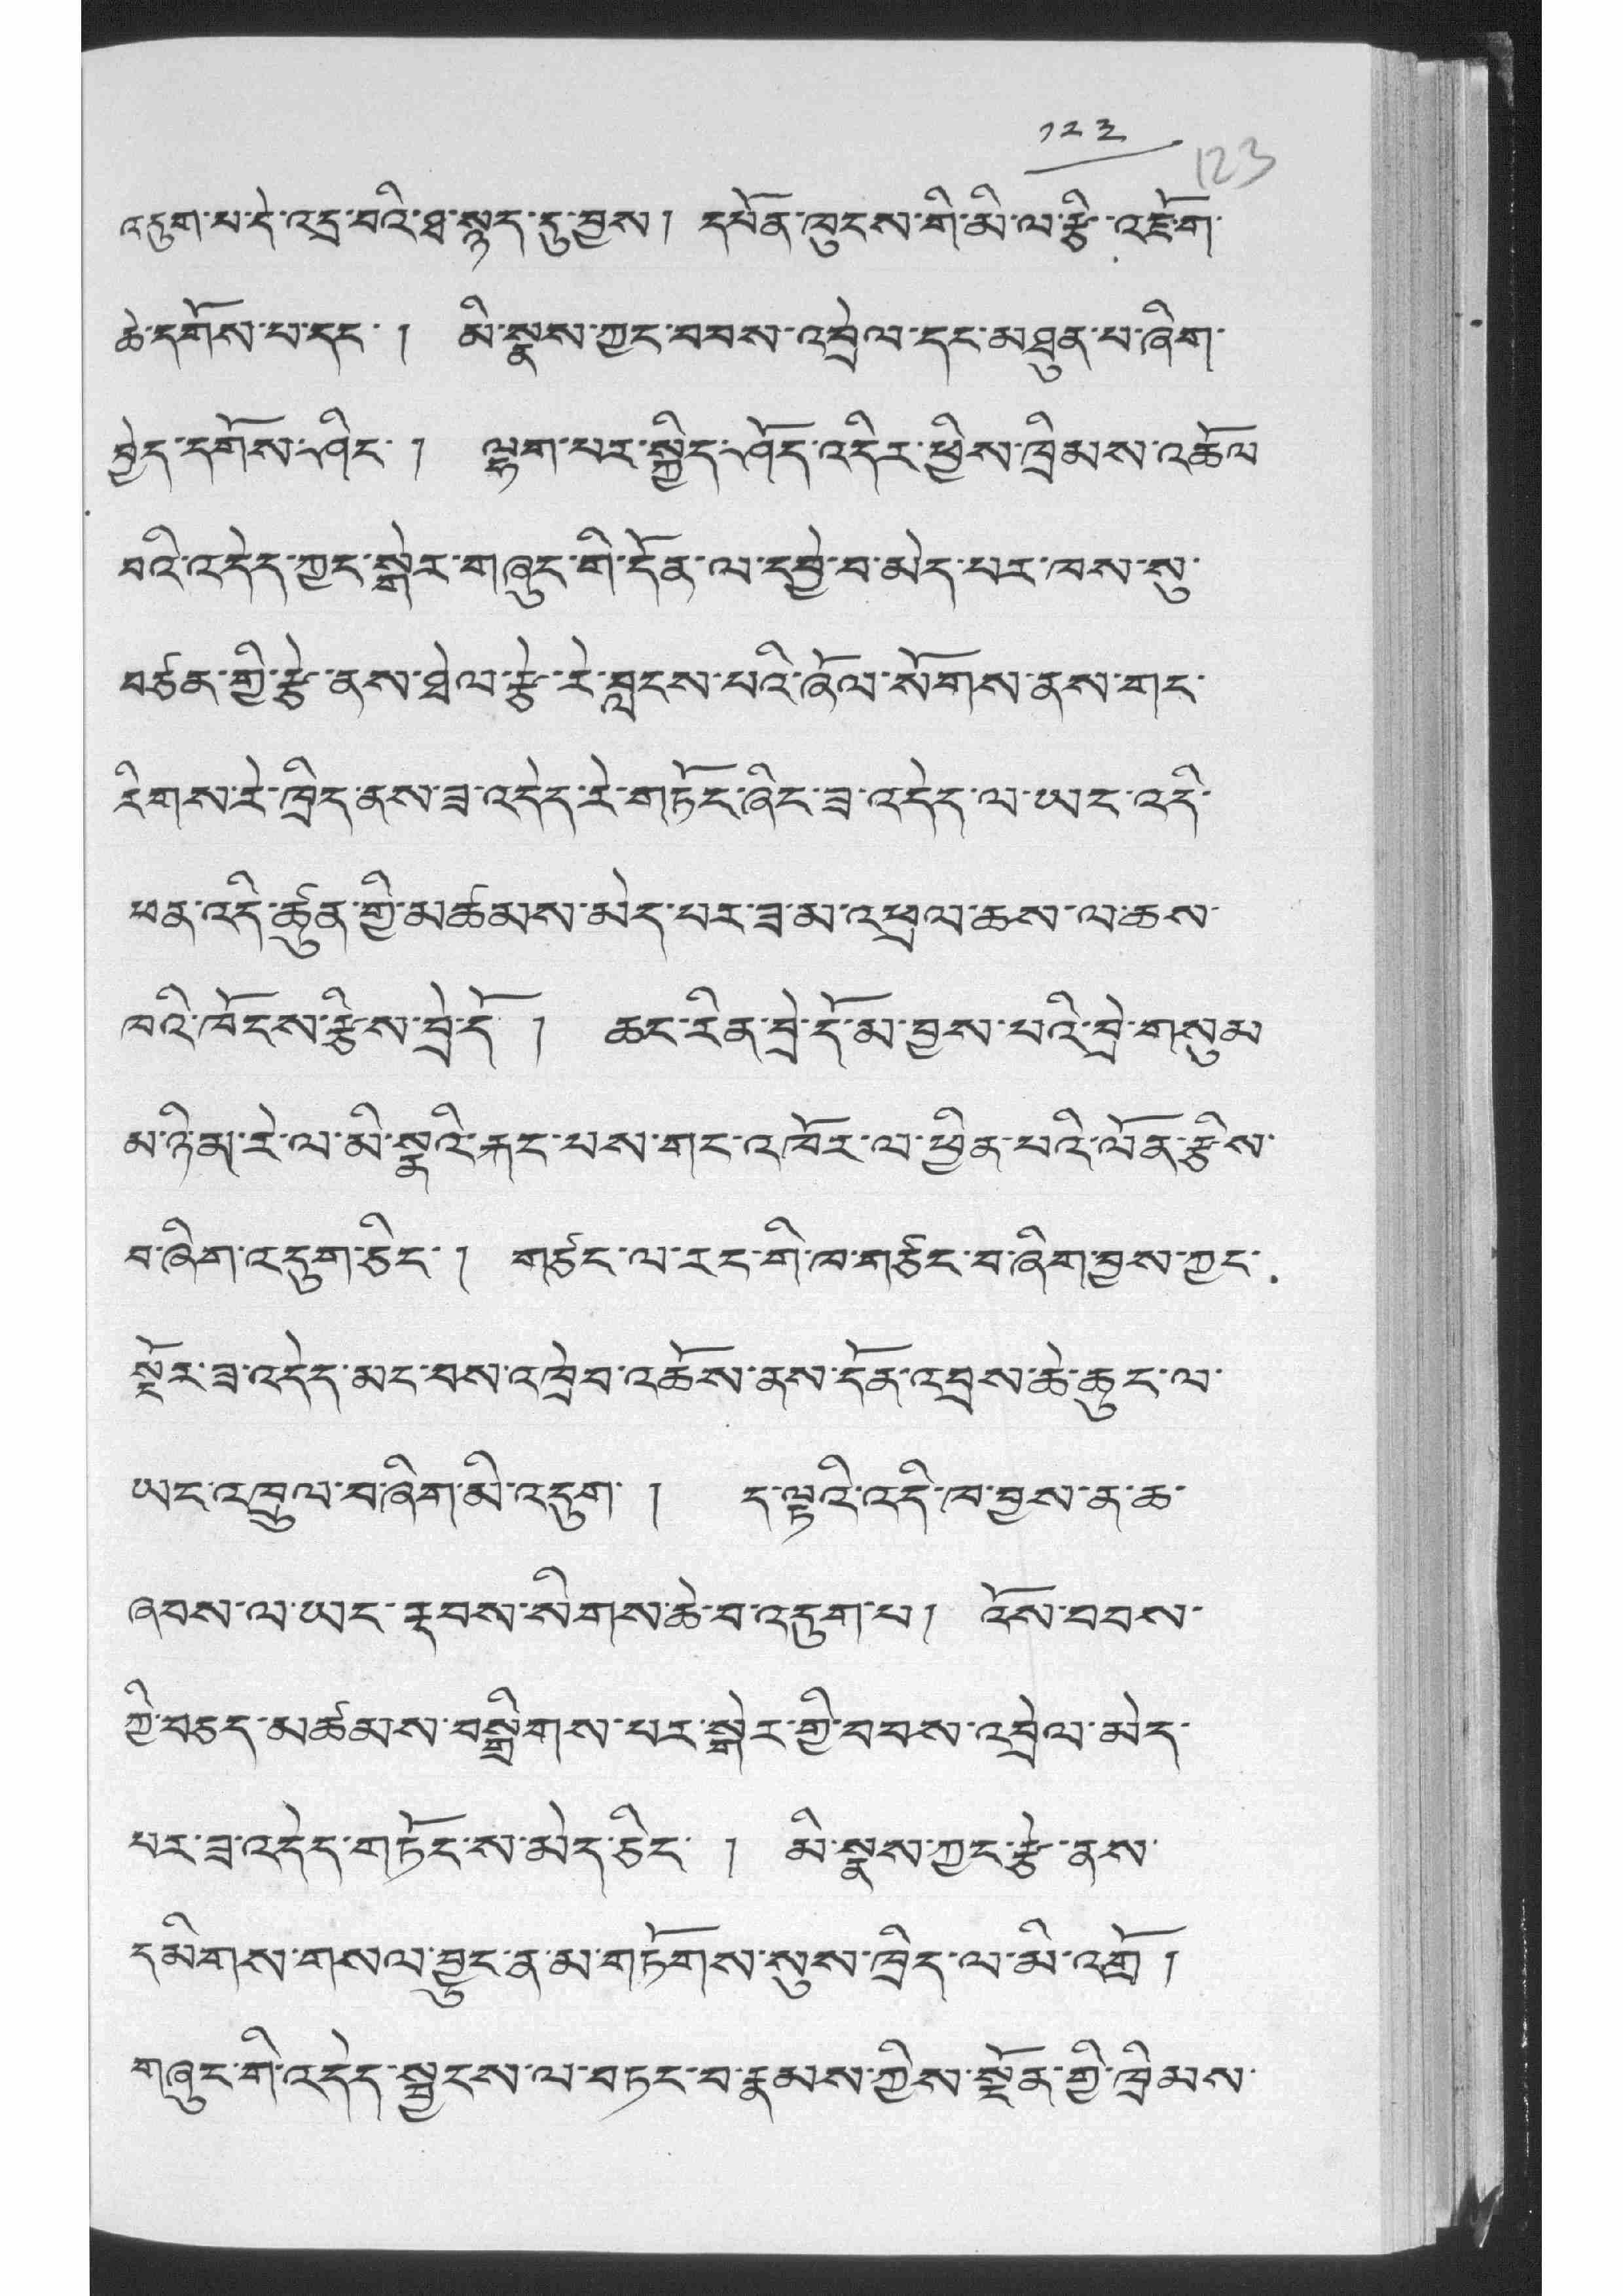 ༡༢༣ 123
འདུག་པ་དེ་འདྲ་བའི་ཐ་སྙད་དུ་བྱས། དཔོན་ཁུངས་གི་མི་ལ་རྩི་འཇོག་
ཆེ་དགོས་པ་དང་། མི་སྣས་ཀྱང་བབས་འབྲེལ་དང་མཐུན་པ་ཞིག་
བྱེད་དགོས་ཤིང་། ལྷག་པར་སྐྱིད་ཤོད་འདིར་ཕྱིས་ཁྲིམས་འཆོལ
བའི་འདེད་ཀྱང་སྒེར་གཞུང་གི་དོན་ལ་དབྱེ་བ་མེད་པར་ཁས་སུ་
བཙན་གྱི་རྩེ་ནས་ཐེལ་རྩེ་རེ་བླངས་པའི་ཞོལ་སོགས་ནས་གང་
རིགས་རེ་ཁྲིད་ནས་ཟ་འདེད་རེ་གཏོང་ཞིང་ཟ་འདེད་ལ་ཡང་འདི་
ཕན་འདི་ཚུན་གྱི་མཚམས་མེད་པར་ཟ་མ་འཕྲལ་ཆས་ལ་ཆས་
ཁའི་ཁོངས་རྩིས་བྲེ་དོ། ཆང་རིན་བྲེ་དོ་མ་བྱས་པའི་བྲེ་གསུམ
མ་ཉིན་རེ་ལ་མི་སྣའི་རྐང་པས་གང་འཁོར་ལ་ཕྱིན་པའི་ལོན་རྩིས་
བ་ཞིག་འདུག་ཅིང་། གཙང་ལ་རང་གི་ཁ་གཙང་བ་ཞིག་བྱས་ཀྱང་
སྔོར་ཟ་འདེད་མང་བས་འཁྲེབ་འཆོས་ནས་དོན་འབྲས་ཆེ་ཆུང་ལ་
ཡང་འཁྲུལ་བ་ཞིག་མི་འདུག །ད་ལྟའི་འདི་ཁ་བྱས་ན་ཆ་
ཞབས་ལ་ཡང་རྣབས་སེགས་ཆེ་བ་འདུག་པ། འོས་བབས་
ཀྱི་བཅད་མཚམས་བསྒྲིགས་པར་སྒེར་གྱི་བབས་འབྲེལ་མེད་
པར་ཟ་འདེད་གཏོང་ས་མེད་ཅིང་། མི་སྣས་ཀྱང་རྩེ་ནས་
དམིགས་གསལ་བྱུང་ན་མ་གཏོགས་སུས་ཁྲིད་ལ་མི་འགྲོ།
གཞུང་གི་འདེད་སྦྱངས་ལ་བཏང་བ་རྣམས་ཀྱིས་སྔོན་གྱི་ཁྲིམས་